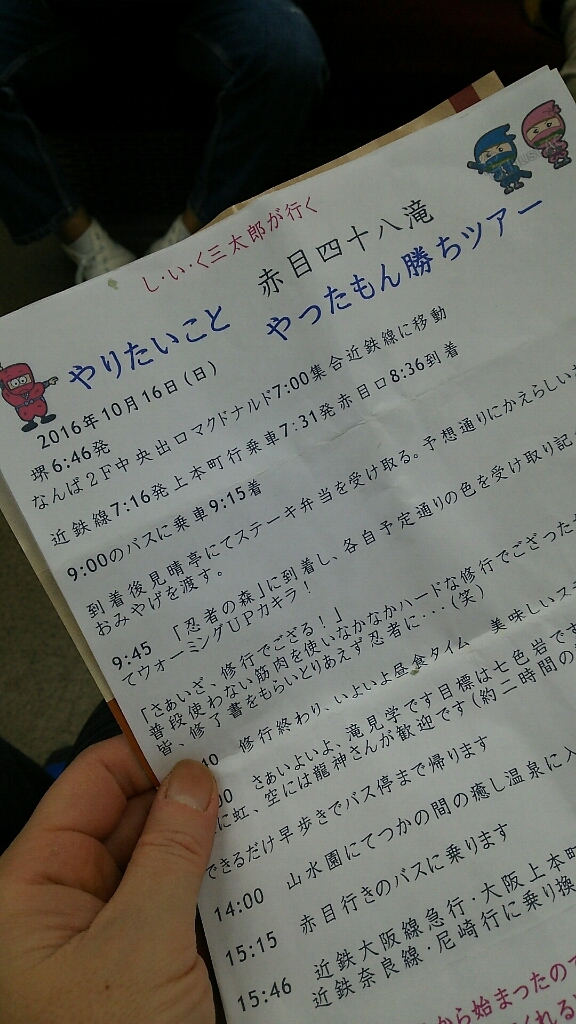 し・い・く三太郎が行く
赤目四十八滝
やりたいこと やったもん勝ちツアー
2016年10月16日(日)
堺6:46発
なんば2F中央出口マクドナルド7:00集合近鉄線に移動
近鉄線7:16発上本町行乗車7:31発赤目口8:36到着
9:00のバスに乗車9:15着
到着後見晴亭にてステーキ弁当を受け取る。予想通りにかえらしい
おみやげを渡す。
9:45 「忍者の森」に到着し、各自予定通りの色を受け取り記
てウォーミングUPカキラ!
「さぁいざ、修行でござる!」
普段使わない筋肉を使いなかなかハードな修行でござった
皆、修了書をもらいとりあえず忍者に・・・・(笑)
修行終わり、いよいよ昼食タイム 美味しいス
さぁいよいよ、滝見学です目標は七色岩です
に虹、空には龍神さんが歓迎です(約二時間の
できるだけ早歩きでバス停まで帰ります
14:00 山水園にてつかの間の癒し温泉に入
15:15 赤目行きのバスに乗ります
15:46 近鉄大阪線急行・大阪上本町
近鉄奈良線・尼崎行に乗り換
から始まったので